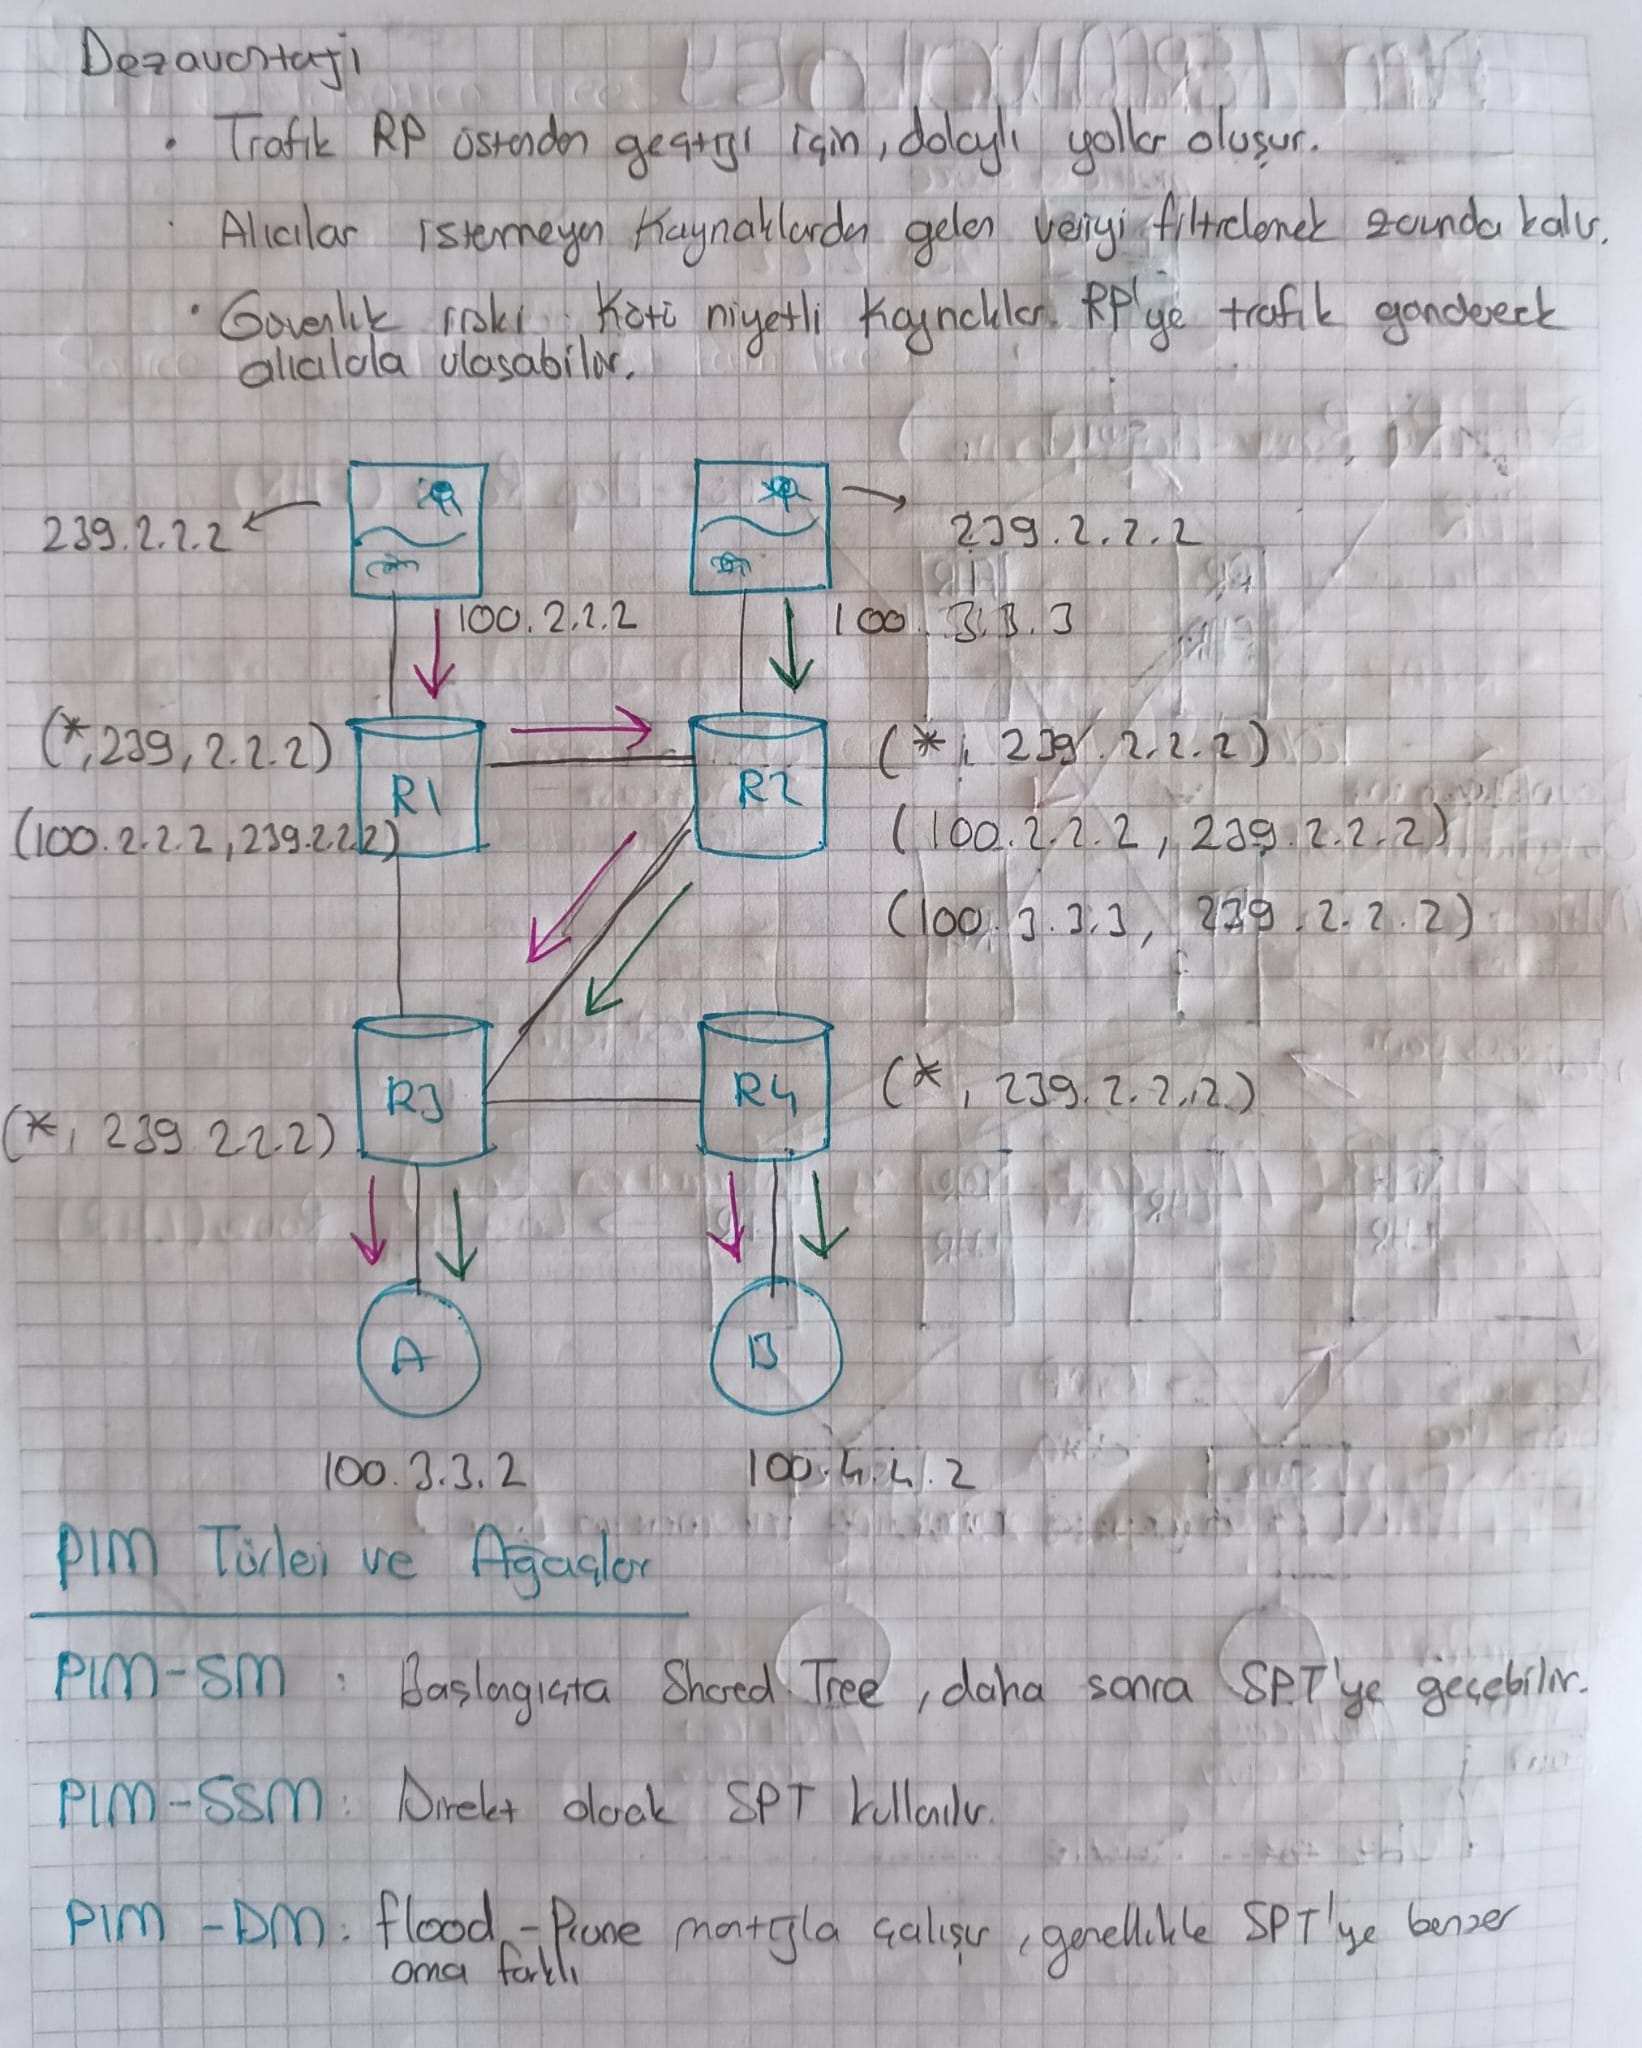 Dezavantajı
• Trafik RP üstünden geçtiği için, dolaylı yollar oluşur.
· Alıcılar istemeyen kaynaklardan gelen veriyi filtrelemek zorunda kalır.
• Güvenlik riski : Kötü niyetli kaynaklar RP'ye trafik göndererek
alıcılala ulaşabilir.
239.2.2.2
239.2.2.2
100.2.2.2
100.3.3.3
(*,239,2.2.2)
R1
R2
(*, 239.2.2.2)
(100.2.2.2,239.2.2.2)
(100.2.2.2, 239.2.2.2)
(100.3.3.3, 239.2.2.2)
R3
R4
(*, 239.2.2.2)
(*, 239 2.2.2)
A
B
100.3.3.2
100.4.4.2
PIM Türleri ve Ağaçlar
PIM-SM : Başlangıçta Shared Tree, daha sonra SPT'ye geçebilir.
PIM-SSM : Direkt olarak SPT kullanılır.
PIM-DM : flood-Prune mantığıyla çalışır, genellikle SPT'ye benzer
ama farklı